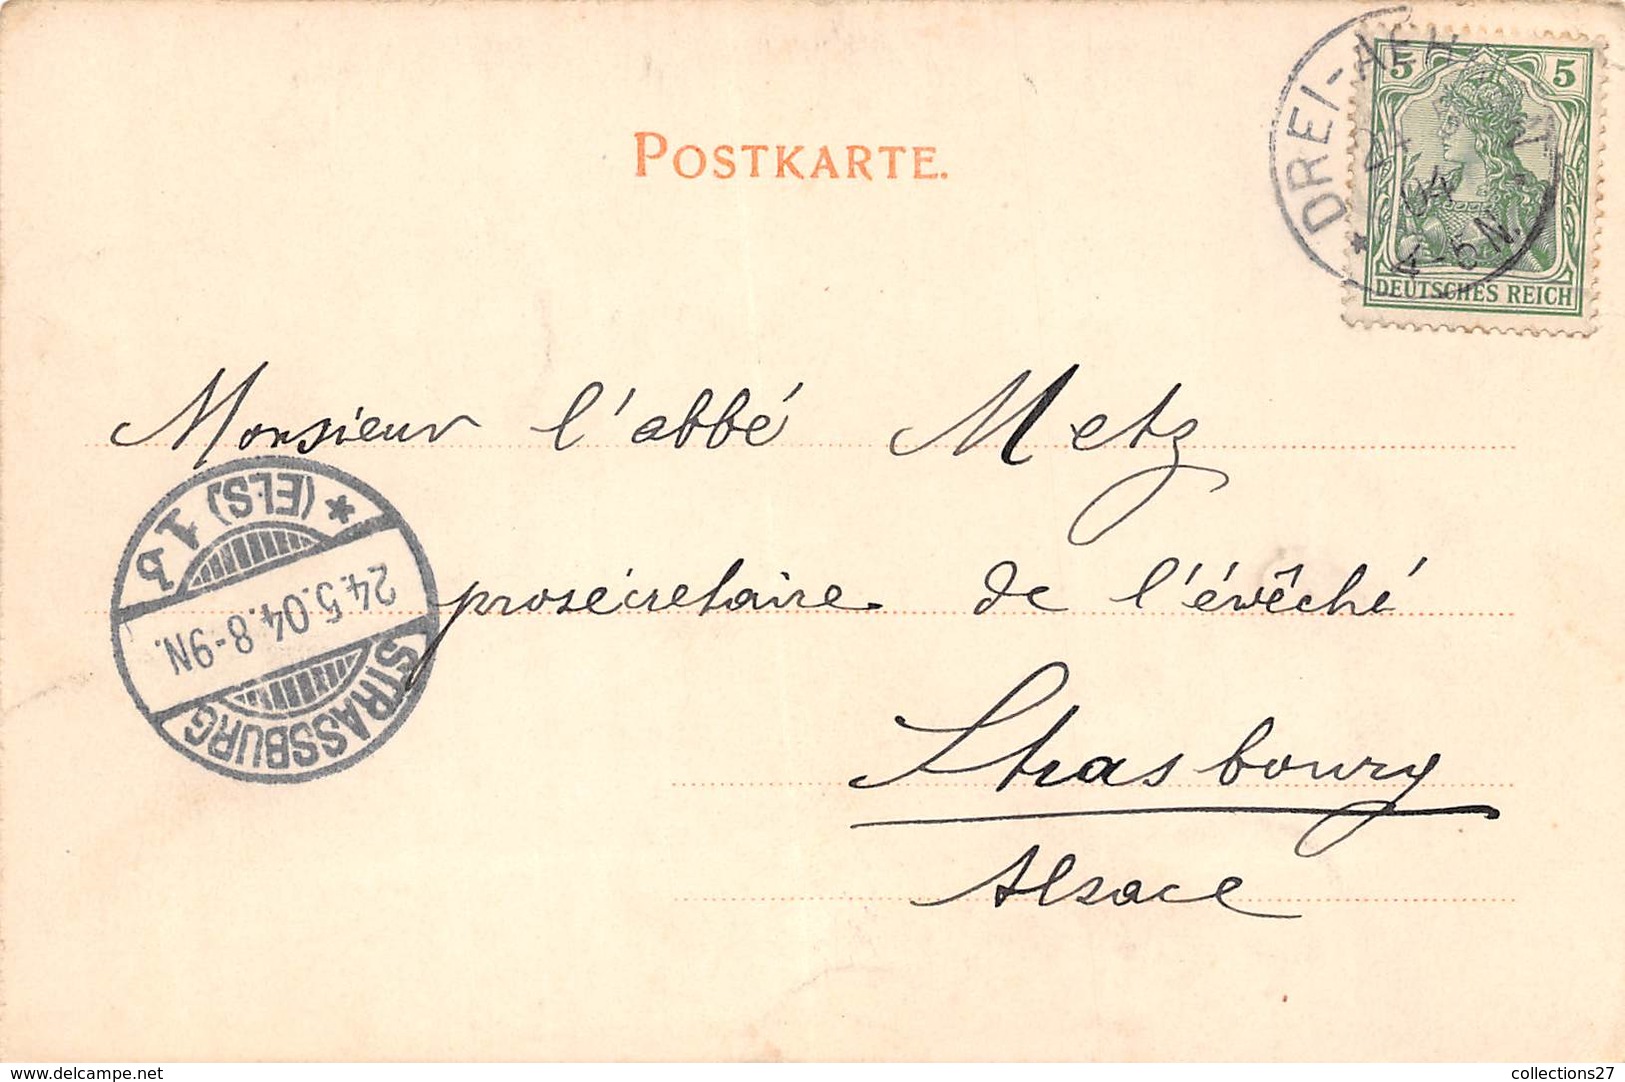 POSTKARTE.
5 5
DEUTSCHES REICH
* DREI-AEH
04
4-5N.
Monsieur l'abbé Metz
prosécretaire de l'évêché
Strasbourg
Alsace
STRASSBURG
24.5.04. 8-9N.
* (ELS) 1 b
delcampe.net
collections27